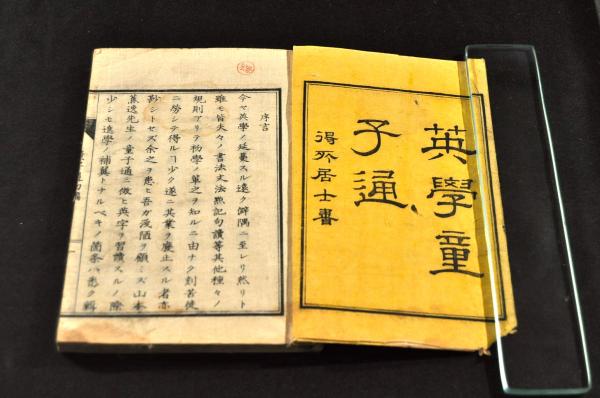 英學童
子通
得所居士書
序言
今ヤ英學ノ延蔓スル遠ク僻隅ニ至レリ然リト
雖モ皆夫々ノ書法文法點記句讀等其他種々ノ
規則アリテ初學ノ輩之ヲ知ルニ由ナク刻苦徒
ニ勞シテ得ルヿ少ク遂ニ其業ヲ廢止スル者亦
尠シトセズ余之ヲ患ヒ吾ガ淺陋ヲ顧ミズ山本
蕉逸先生ノ童子通ニ倣ヒ英字ヲ習讀スルノ際
少シモ進學ノ補翼トナルベキノ箇条ハ悉ク輯